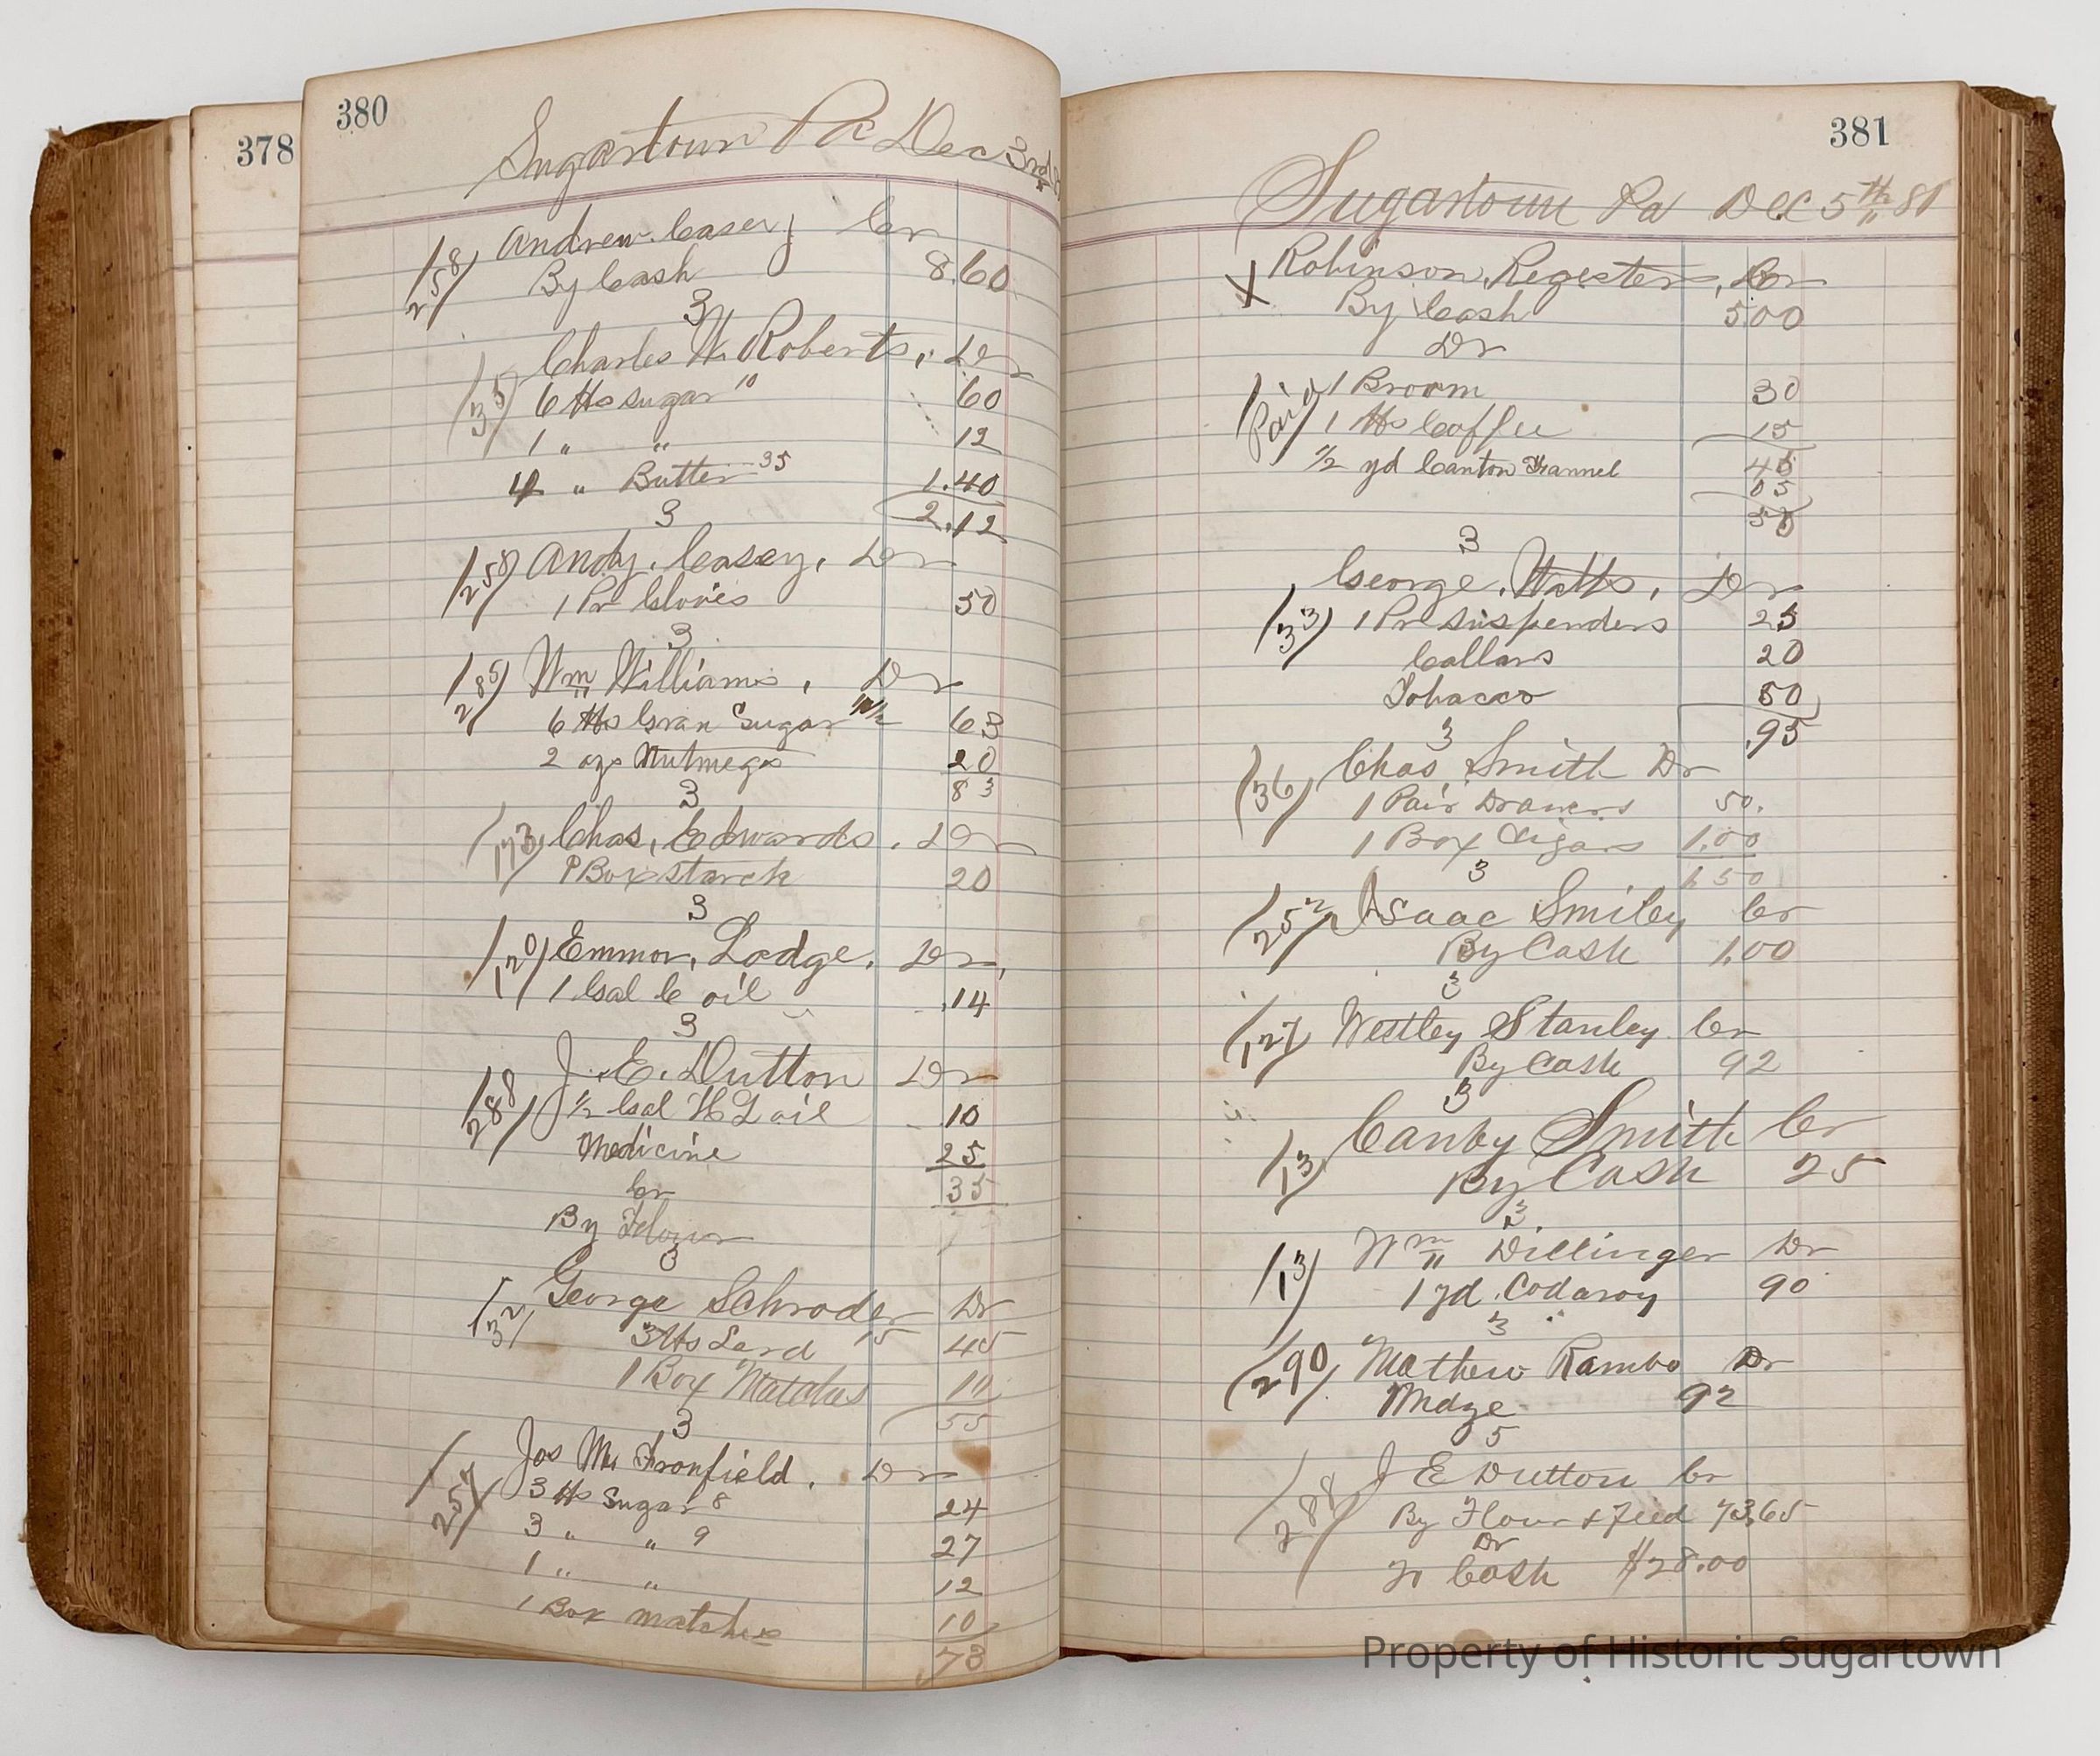 378
380
Sugartown Pa Dec 3rd
258 Andrew Casey Cr
By Cash 8.60
3
Charles W. Roberts, Dr
35 6 lbs sugar 10 60
1 " " 12
4 " Butter 35 1.40
2.12
3
258 Andy. Casey, Dr
1 Pr Gloves 50
3
285 Wm Williams, Dr
6 lbs Gran Sugar 10½ 63
2 ozs Nutmegs 20
83
3
173 Chas, Edwards. Dr
1 Box starch 20
3
120 Emmor, Lodge. Dr,
1 Gal C oil .14
3
288 J. E. Dutton Dr
½ Gal H L oil 10
Medicine 25
35
Cr
By Flour
3
132 George Schroder Dr
3 lbs Lard 15 45
1 Box Matches 10
55
3
257 Jos M. Fronfield. Dr
3 lbs Sugar 8 24
3 " " 9 27
1 " " 12
1 Box matches 10
73
381
Sugartown Pa Dec 5th 81
X Robinson, Register, Cr
By Cash 5.00
Dr
Paid 1 Broom 30
1 lbs Coffee 15
45
½ yd Canton Flannel 05
50
3
George. Watts, Dr
33 1 Pr Suspenders 25
Collars 20
Tobacco 50
.95
3
36 Chas Smith Dr
1 Pair Drawers 50.
1 Box Cigars 1.00
1.50
3
252 Isaac Smiley Cr
By Cash 1.00
3
127 Westley Stanley Cr
By Cash 92
3
13 Canby Smith Cr
By Cash 25
3
13 Wm Dillinger Dr
1 yd. Codaroy 90
3
290 Mathew Rambo Dr
Mdze 92
5
288 J E Dutton Cr
By Flour & Feed 73.65
Dr
To Cash $28.00
Property of Historic Sugartown